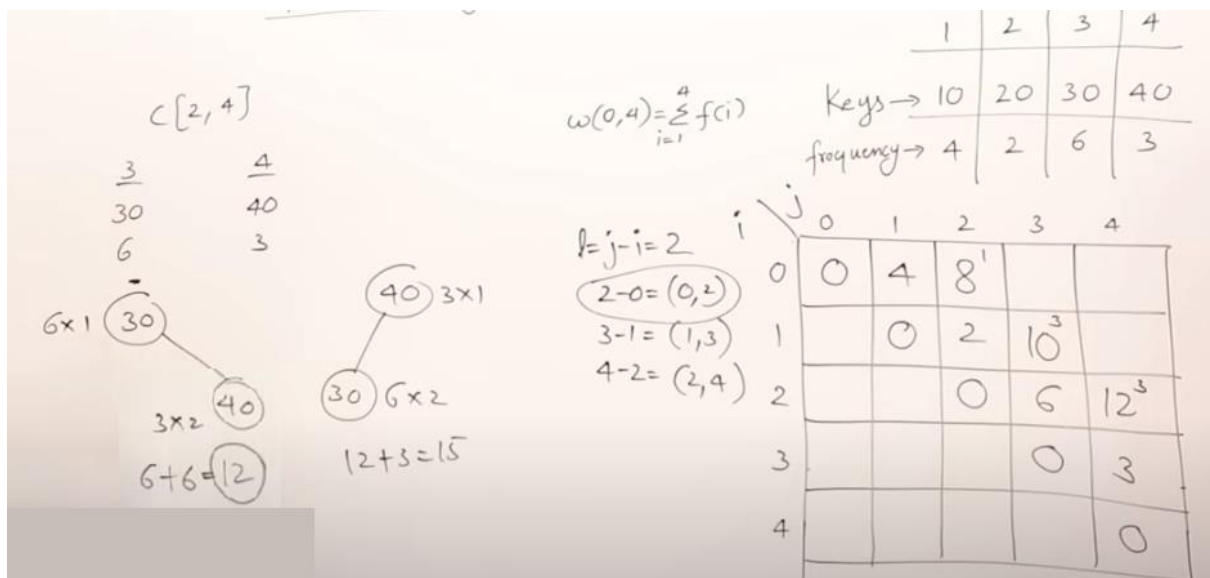 C[2,4]
3 4
30 40
6 3
6×1 30
3×2 40
6+6=12
40 3×1
30 6×2
12+3=15
w(0,4)=Σ f(i)
4
i=1
l=j-i=2
2-0=(0,2)
3-1=(1,3)
4-2=(2,4)
1 2 3 4
Keys→ 10 20 30 40
frequency→ 4 2 6 3
i j 0 1 2 3 4
0 0 4 8¹
1 0 2 10³
2 0 6 12³
3 0 3
4 0